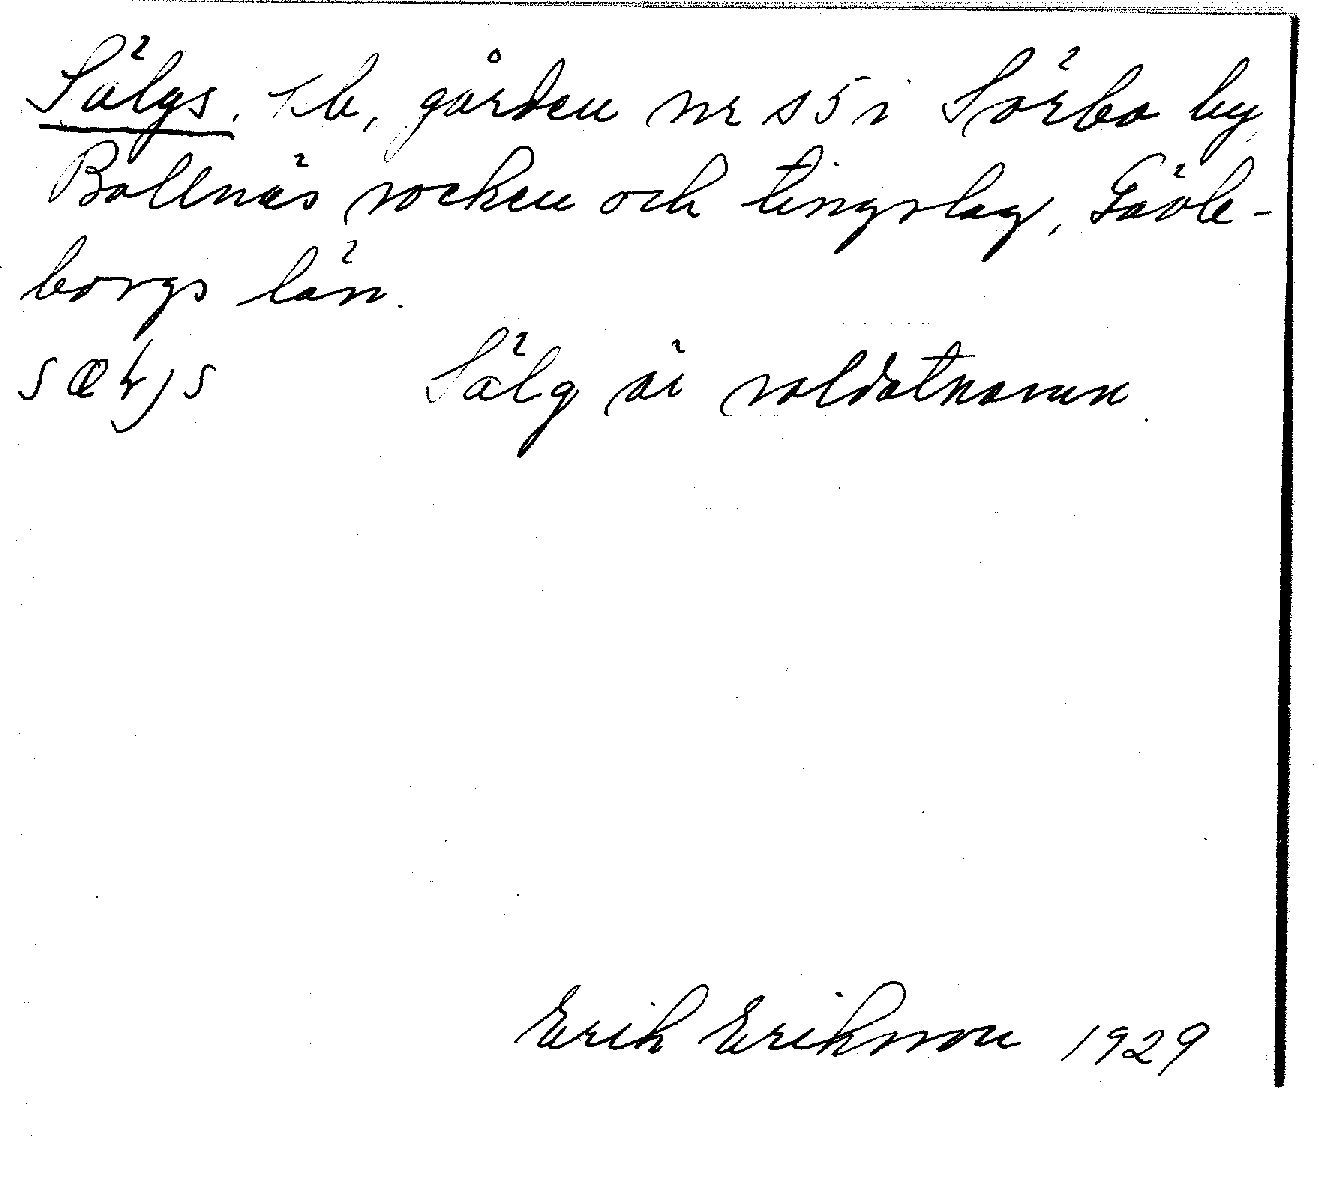 Sälgs. tb, gården nr 15 i Sörbo by
Bollnäs socken och tingslag, Gävle-
borgs län.
Sälg är soldatnamn.
Erik Eriksson 1929